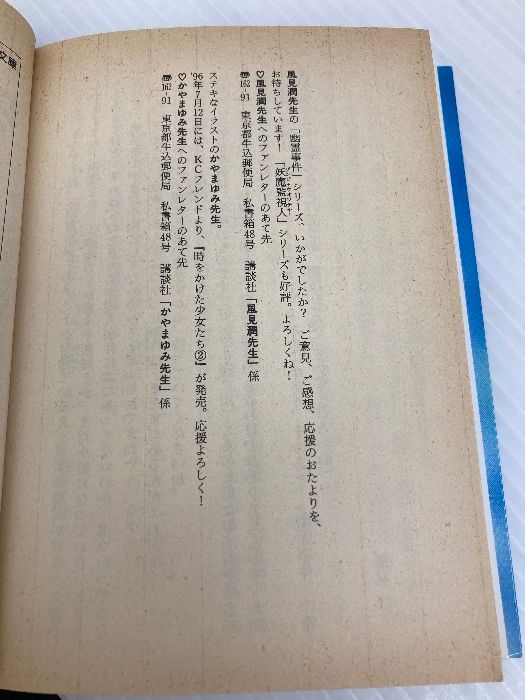 風見潤先生の「幽霊事件」シリーズ、いかがでしたか？ ご意見、ご感想、応援のおたよりを、
お待ちしています！「妖魔監視人」シリーズも好評。よろしくね！
♡風見潤先生へのファンレターのあて先
〠162-91 東京都牛込郵便局 私書箱48号 講談社「風見潤先生」係
ステキなイラストのかやまゆみ先生。
'96年7月12日には、KCフレンドより、『時をかけた少女たち②』が発売。応援よろしく！
♡かやまゆみ先生へのファンレターのあて先
〠162-91 東京都牛込郵便局 私書箱48号 講談社「かやまゆみ先生」係
文庫